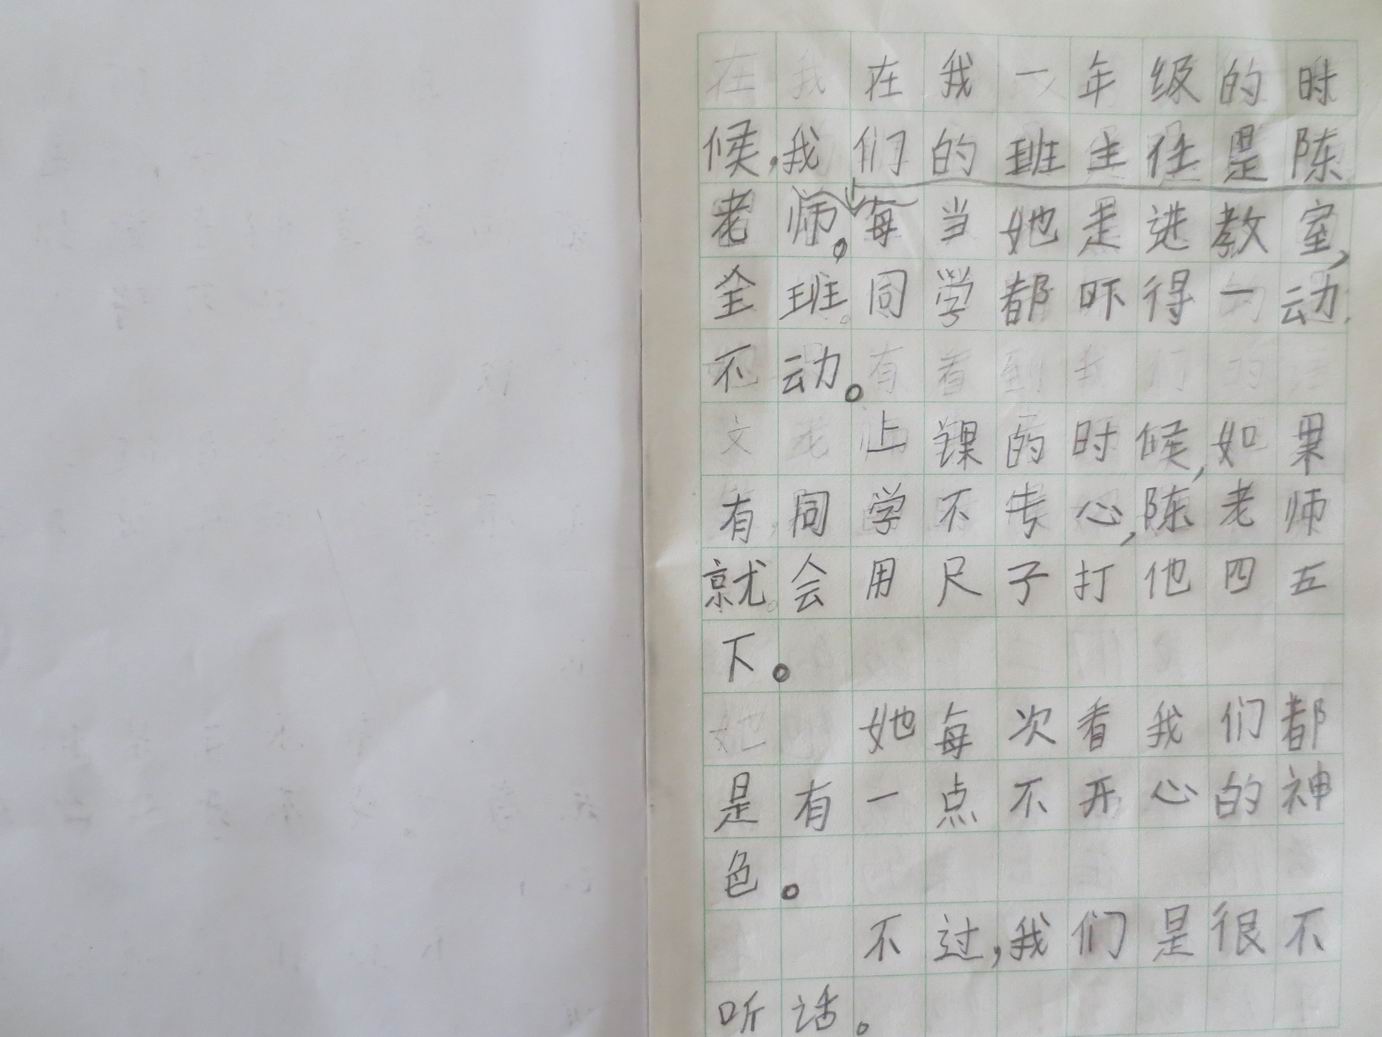 在我一年级的时
候,我们的班主任是陈
老师。每当她走进教室,
全班同学都吓得一动
不动。
上课的时候,如果
有同学不专心,陈老师
就会用尺子打他四五
下。
她每次看我们都
是有一点不开心的神
色。
不过,我们是很不
听话。